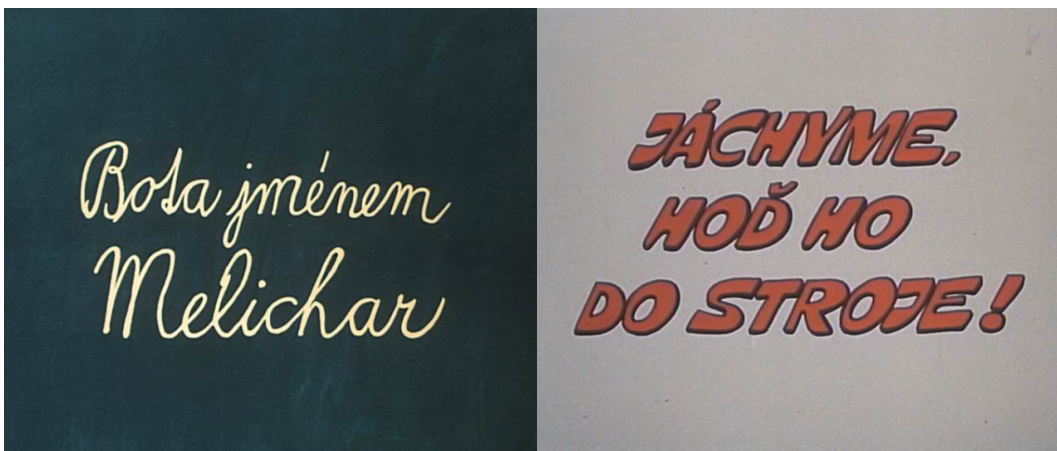 Bota jménem
Melichar
JÁCHYME,
HOĎ HO
DO STROJE!